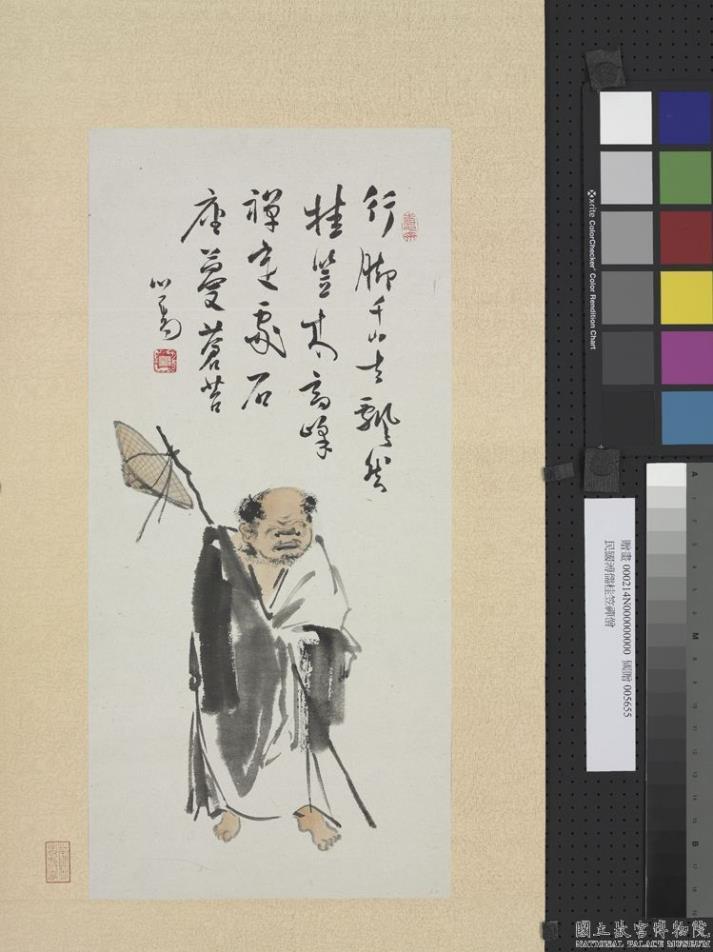 行脚千山去飄然
挂笠來高峰
禪定處石
座蔓蒼苔
心畬
x-rite ColorChecker Color Rendition Chart
贈畫 000214N000000000 國贈 005655
民國溥儒挂笠禪僧
A
M
B
國立故宮博物院
NATIONAL PALACE MUSEUM